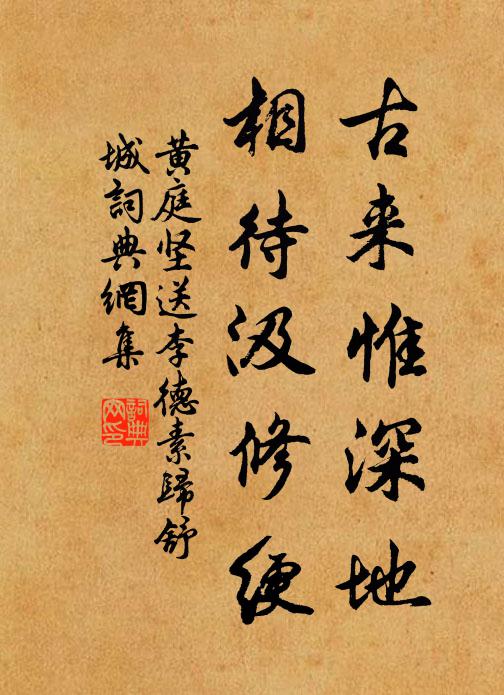 古来惟深地
相待汲修绠
黄庭坚送李德素歸舒
城詞典網集
詞典
网印